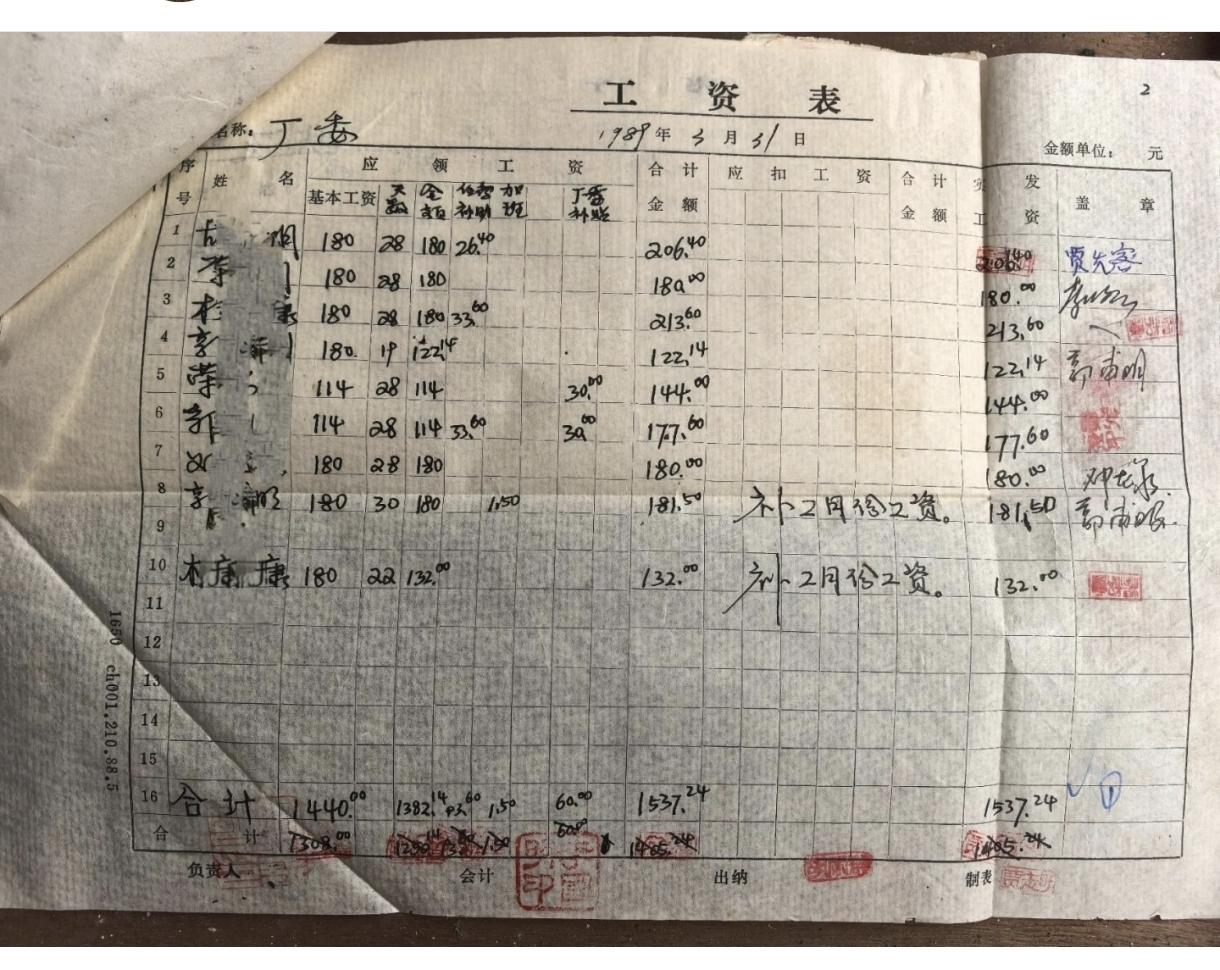 工资表
2
名称: 丁委
1989年3月31日
金额单位: 元
序号 姓名 应领工资 合计金额 应扣工资 合计金额 实发工资 盖章
基本工资 天数 金额 伙委补助 加班 丁委补贴
1 180 28 180 26.40 206.40 206.40 贾先容
2 180 28 180 180.00 180.00
3 康 180 28 180 33.60 213.60 213.60
4 180. 19 122.14 122.14 122.14 郭甫明
5 荣 114 28 114 30.00 144.00 144.00
6 郭 114 28 114 33.60 30.00 177.60 177.60
7 邓 180 28 180 180.00 180.00
8 180 30 180 1.50 181.50 补2月份工资。 181.50 郭甫明
9
10 康 180 22 132.00 132.00 补2月份工资。 132.00
11
12
13
14
15
16 合计 1440.00 1382.14 93.60 1.50 60.00 1537.24 1537.24
合计 1308.00 1.50 60.00 1405.24 1405.24
负责人 会计 出纳 制表
1650 ch001.210.88.5